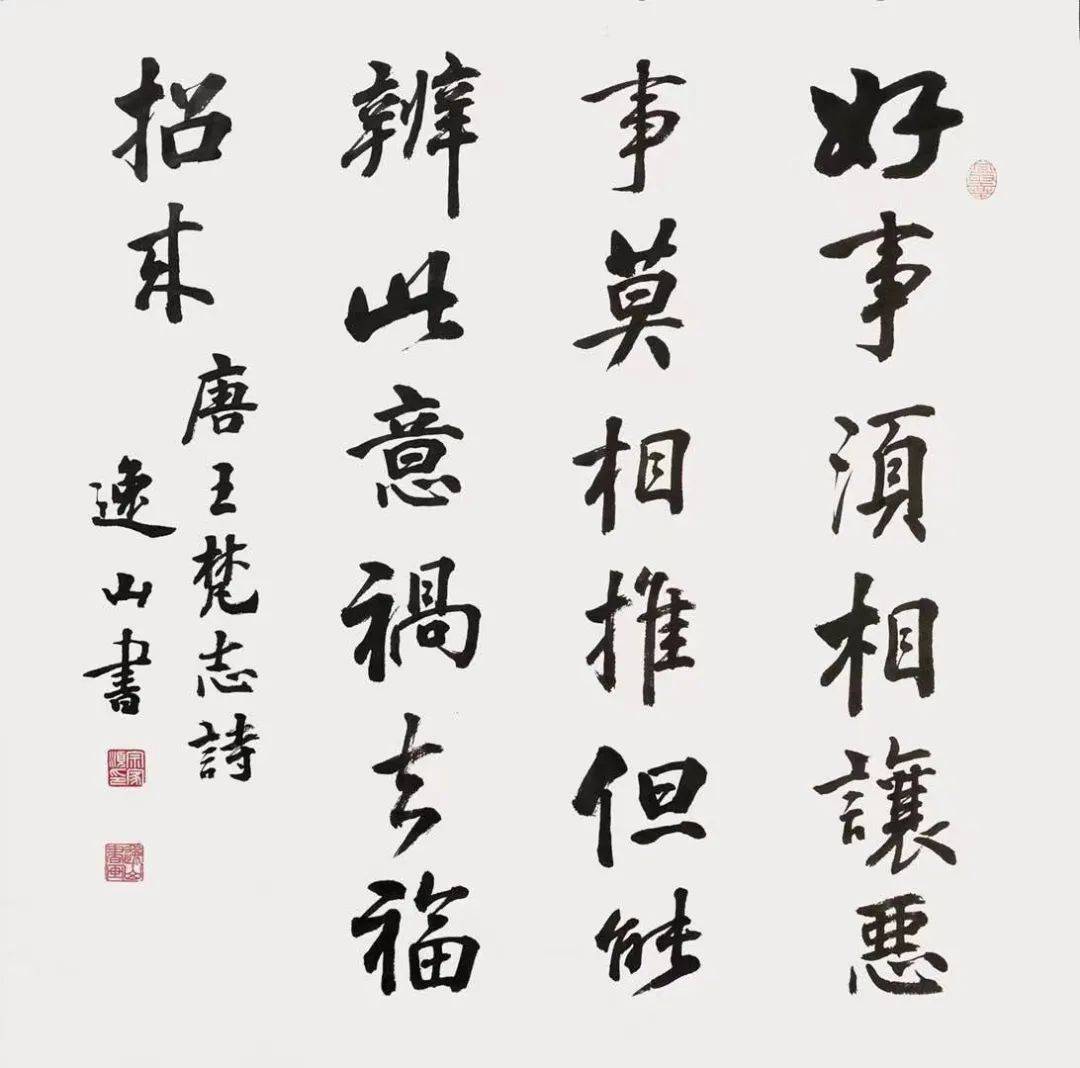 好事須相讓惡
事莫相推但能
辨此意禍去福
招來
唐王梵志詩
逸山書